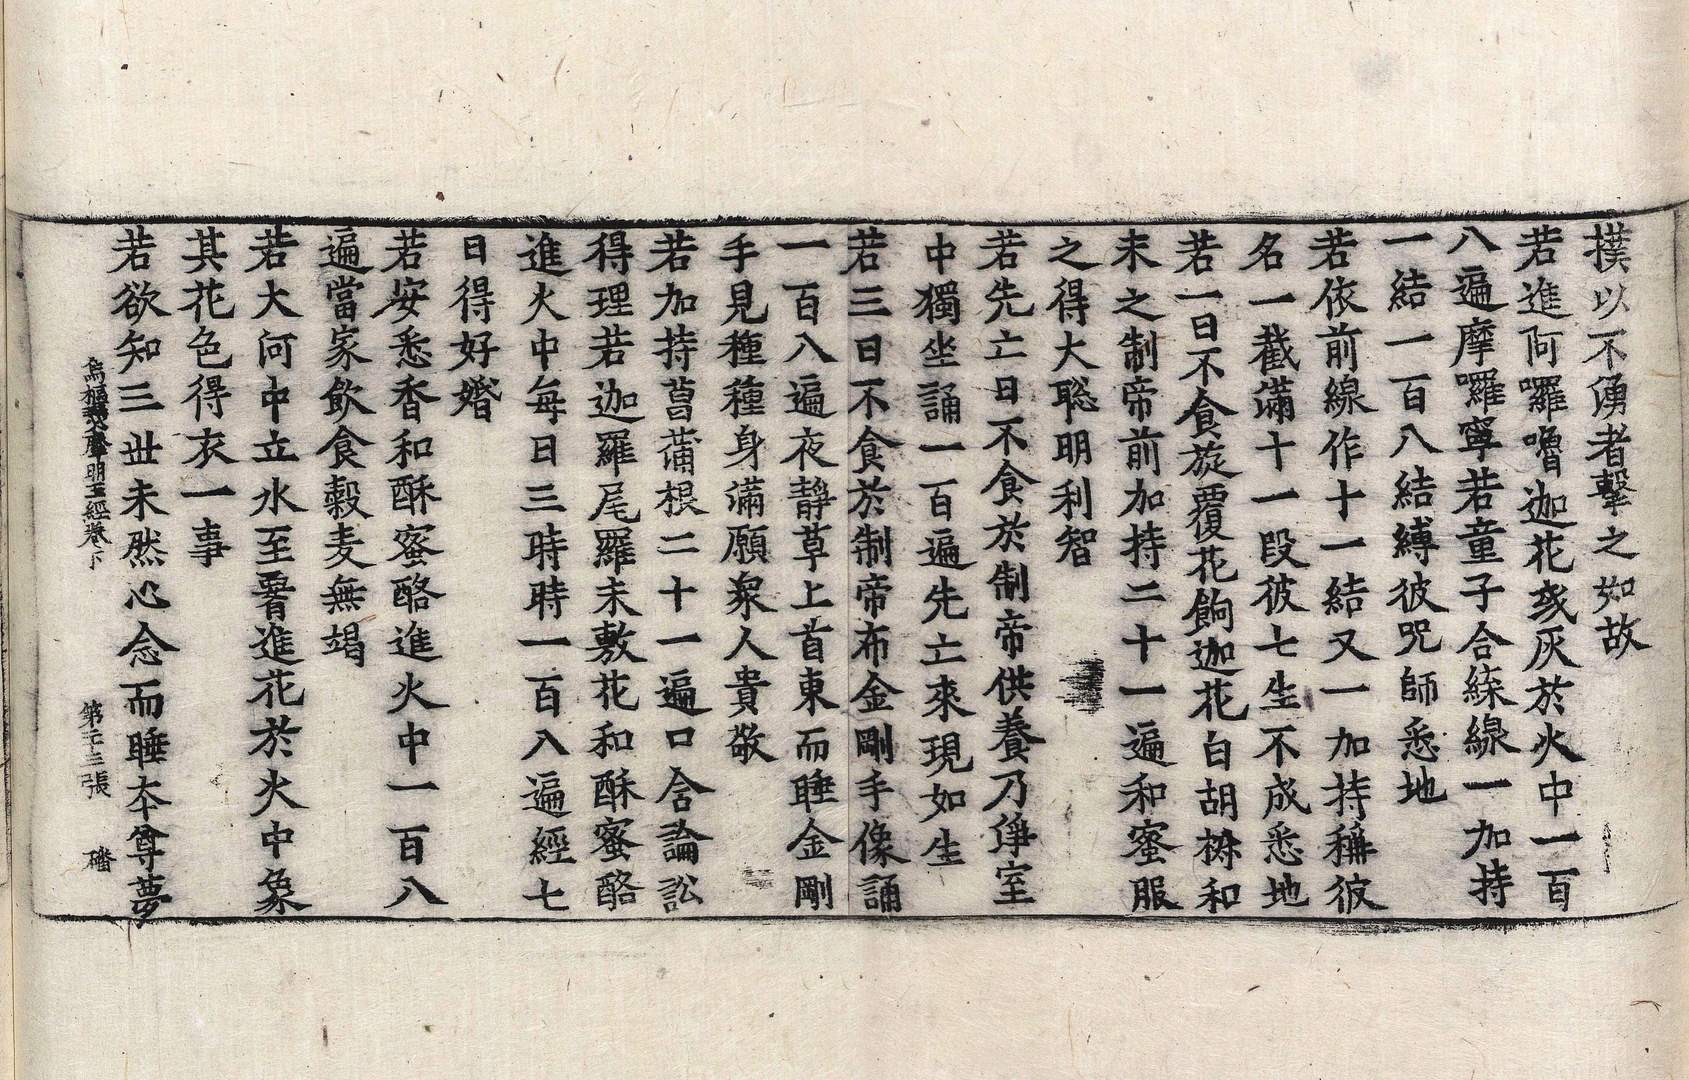 撲以不湧者擊之如故
若進阿囉嚕迦花或灰於火中一百
八遍摩囉寧若童子合線一加持
一結一百八結縛彼呪師悉地
若依前線作十一結又一加持稱彼
名一截滿十一段彼七生不成悉地
若一日不食旋覆花餉迦花白胡椒和
末之制帝前加持二十一遍和蜜服
之得大聡明利智
若先亡日不食於制帝供養乃淨室
中獨坐誦一百遍先亡來現如生
若三日不食於制帝布金剛手像誦
一百八遍夜靜草上首東而睡金剛
手見種種身滿願衆人貴敬
若加持菖蒲根二十一遍口含論訟
得理若迦羅尾羅末敷花和酥蜜酪
進火中每日三時時一百八遍經七
日得好婚
若安悉香和酥蜜酪進火中一百八
遍當家飲食穀麦無竭
若大河中立水至𦠆進花於火中象
其花色得衣一事
若欲知三世未然心念而睡本尊夢
烏樞瑟摩明王經卷下 第二十三張 磻